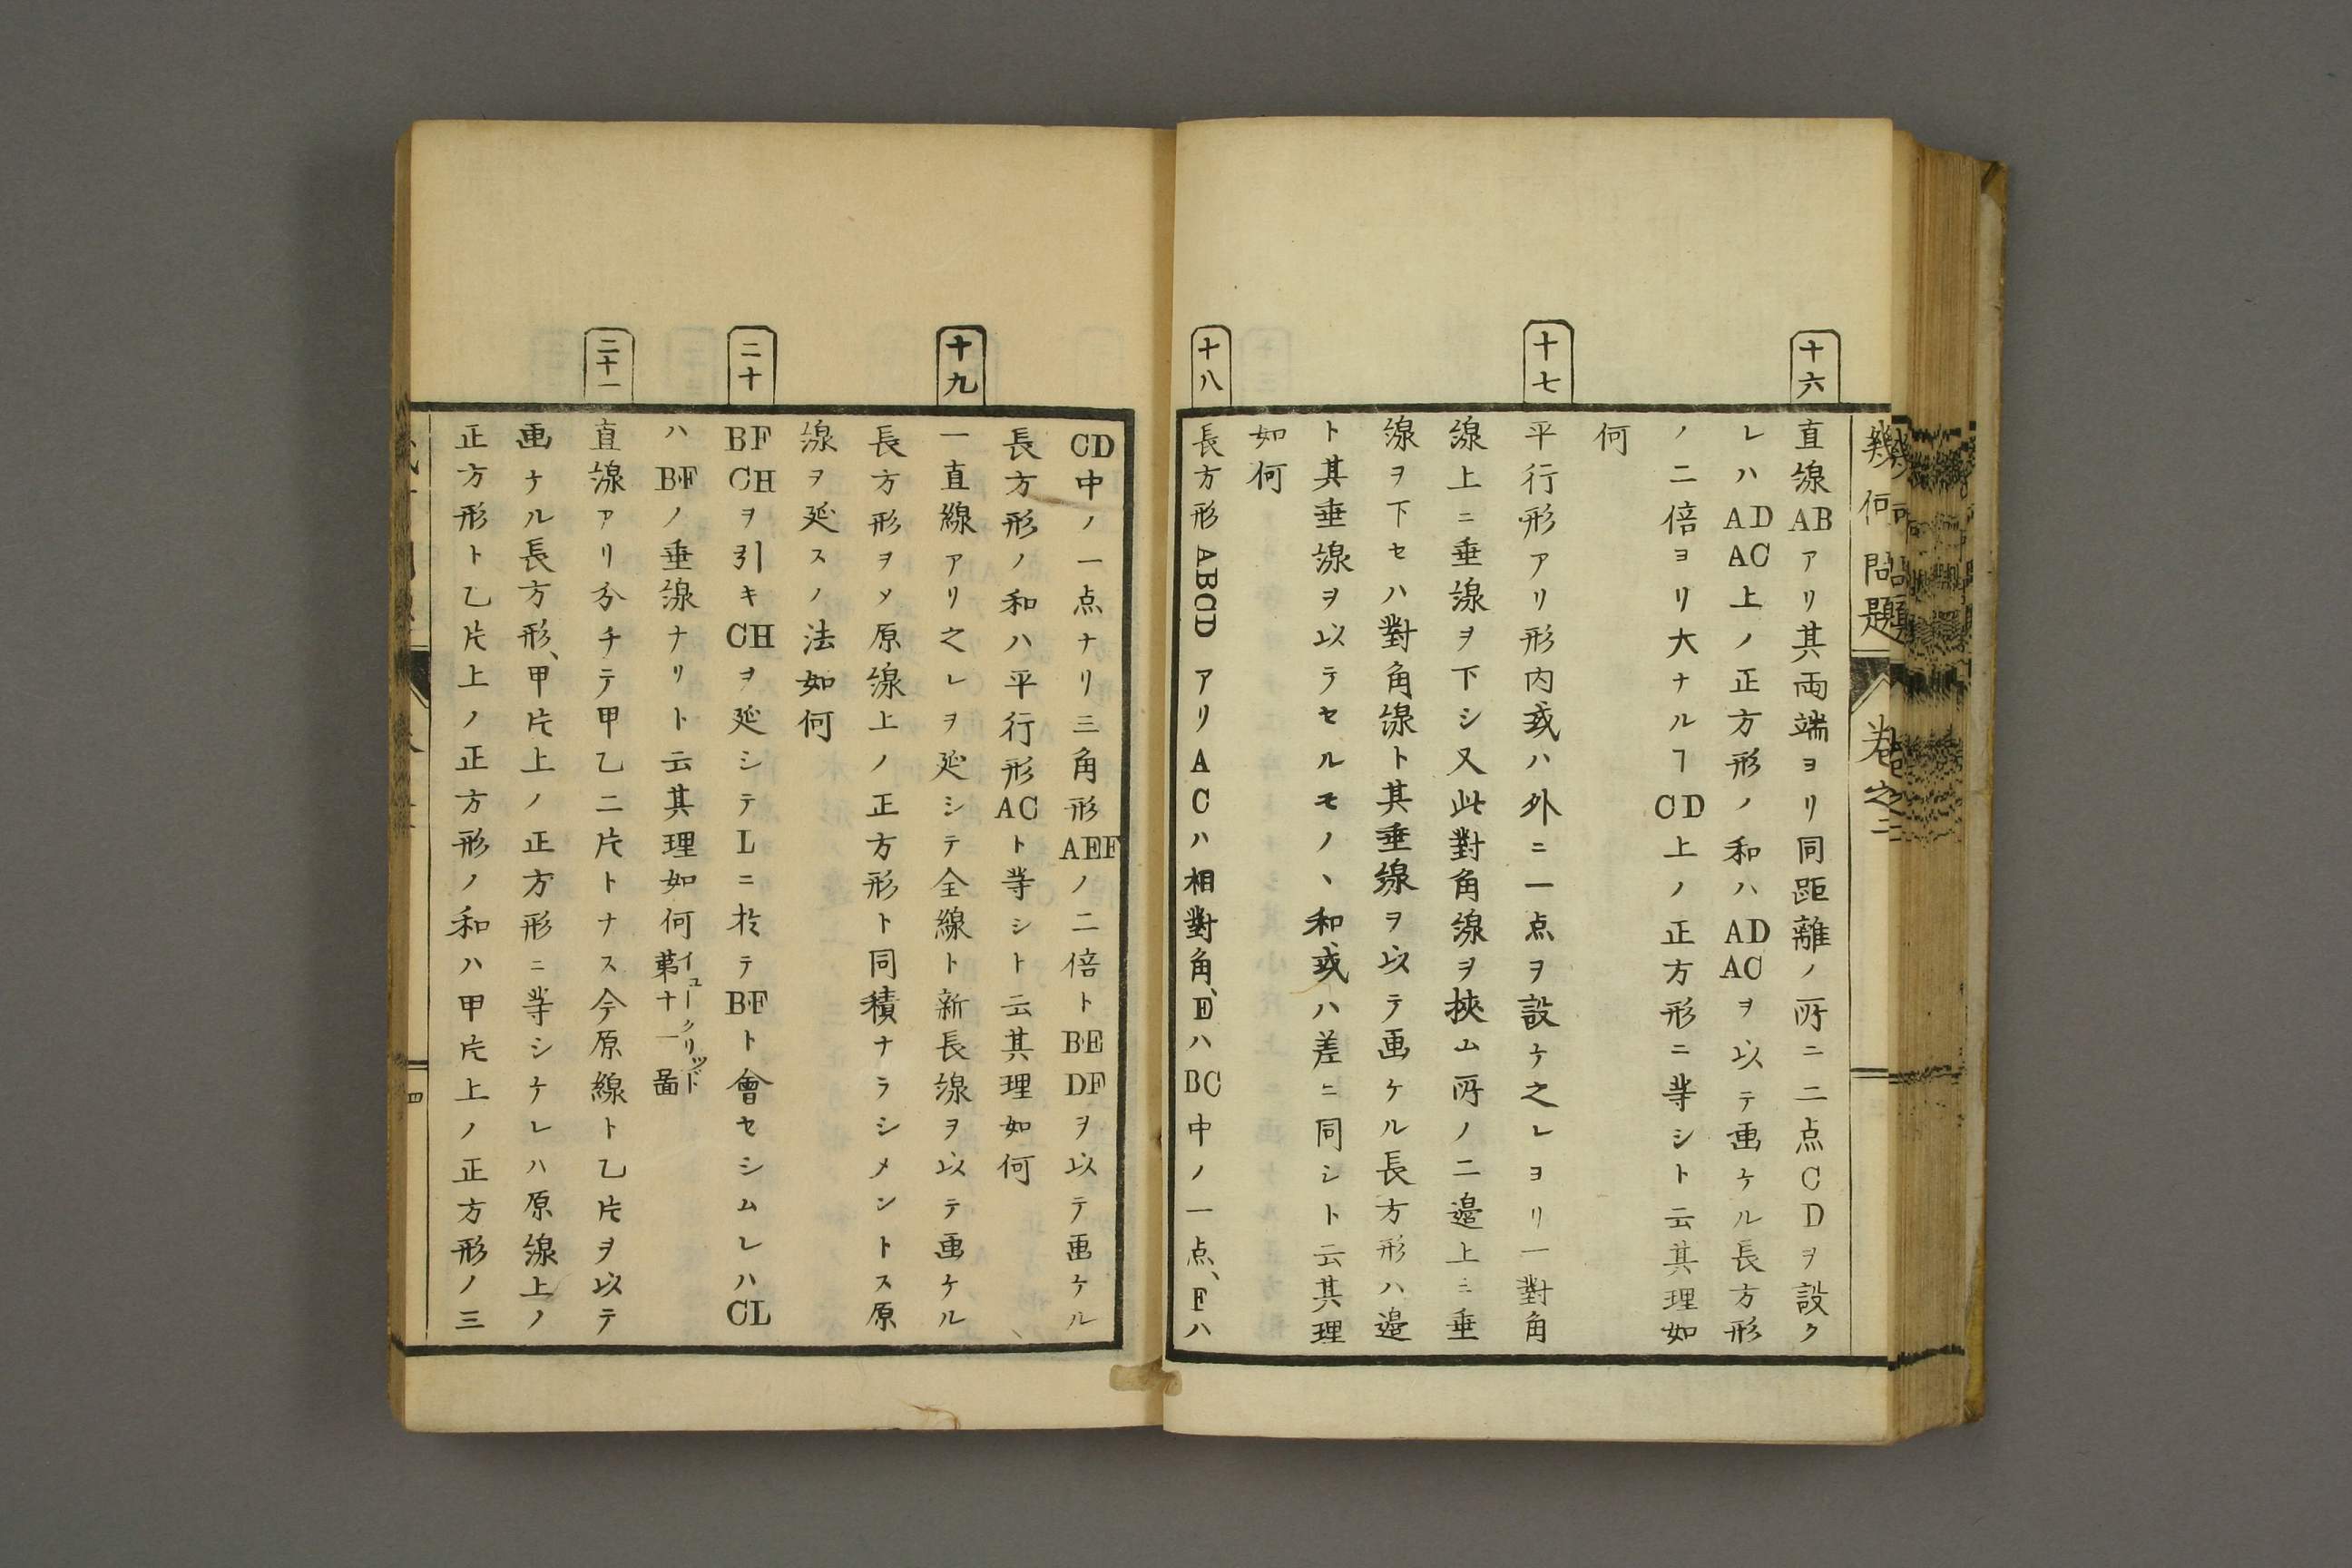 幾何問題
卷之二
十六
直線ABアリ其両端ヨリ同距離ノ所ニ二点CDヲ設ク
レハAD AC上ノ正方形ノ和ハAD ACヲ以テ画ケル長方形
ノ二倍ヨリ大ナルヿCD上ノ正方形ニ等シト云其理如
何
十七
平行形アリ形内或ハ外ニ一点ヲ設ケ之レヨリ一對角
線上ニ垂線ヲ下シ又此對角線ヲ挾ム所ノ二邉上ニ垂
線ヲ下セハ對角線ト其垂線ヲ以テ画ケル長方形ハ邉
ト其垂線ヲ以テセルモノヽ和或ハ差ニ同シト云其理
如何
十八
長方形ABCDアリACハ相對角、EハBC中ノ一点、Fハ
CD中ノ一点ナリ三角形AEFノ二倍トBE DFヲ以テ画ケル
長方形ノ和ハ平行形ACト等シト云其理如何
十九
一直線アリ之レヲ延シテ全線ト新長線ヲ以テ画ケル
長方形ヲメ原線上ノ正方形ト同積ナラシメントス原
線ヲ延スノ法如何
二十
BF CHヲ引キCHヲ延シテLニ於テBFト會セシムレハCL
ハBFノ垂線ナリト云其理如何 イユークリッド第十一圖
二十一
直線アリ分チテ甲乙二片トナス今原線ト乙片ヲ以テ
画ケル長方形、甲片上ノ正方形ニ等シケレハ原線上ノ
正方形ト乙片上ノ正方形ノ和ハ甲片上ノ正方形ノ三
四